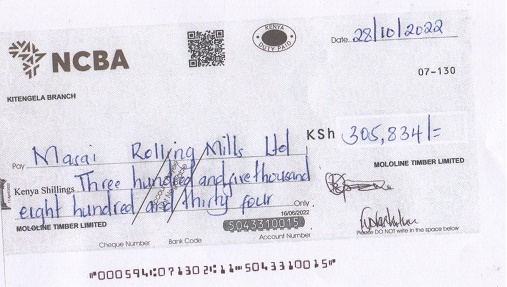 NCBA
KENYA
DUTY PAID
Date 28/10/2022
07-130
KITENGELA BRANCH
Pay Masai Rolling Mills Ltd KSh 305,834/=
MOLOLINE TIMBER LIMITED
Kenya Shillings Three hundred and five thousand
eight hundred and thirty four Only
16/06/2022
MOLOLINE TIMBER LIMITED
5043310015
Cheque Number Bank Code Account Number
Please DO NOT write in the space below
"000594:07130211"5043310015"